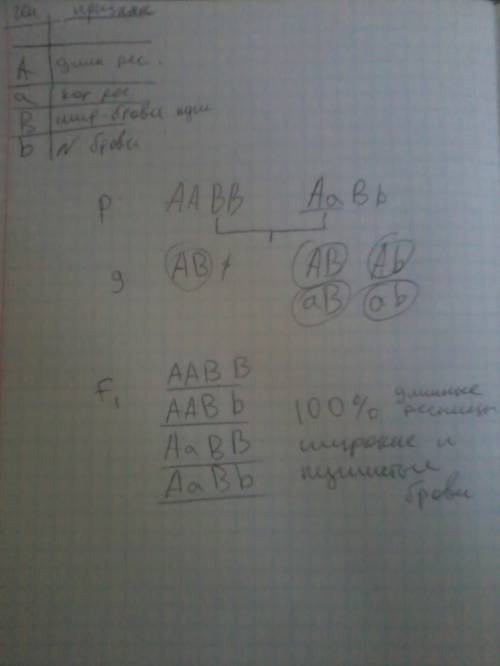 ген признак
A длин рес.
a кор рес
B шир. брови пуш
b N брови
P AABB AaBb
g AB × AB Ab
aB ab
F1 AABB
AABb 100% длинные ресницы
AaBB широкие и
AaBb пушистые
брови